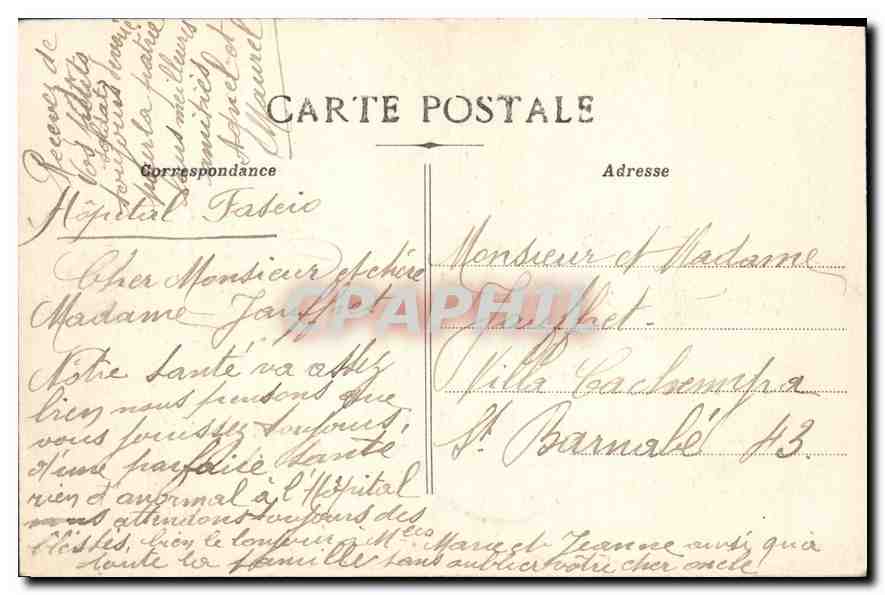 CARTE POSTALE
Correspondance
Adresse
Hôpital Fascio
Cher Monsieur et chère
Madame Jauffret
Nôtre santé va assez
bien nous pensons que
vous jouissez toujours
d'une parfaite santé
rien d'anormal à l'Hôpital
nous attendons toujours des
bléssés, bien le bonjour a Melles Marie et Jeanne ainsi qu'a
toute la famille sans oublier vôtre cher oncle
Recevez de
vos petits
soldats
toujours
pour la patrie
nos meilleurs
amitiés
et
Maurel
Monsieur et Madame
Jauffret
Villa
St Barnabé 43.
CPAPHIL